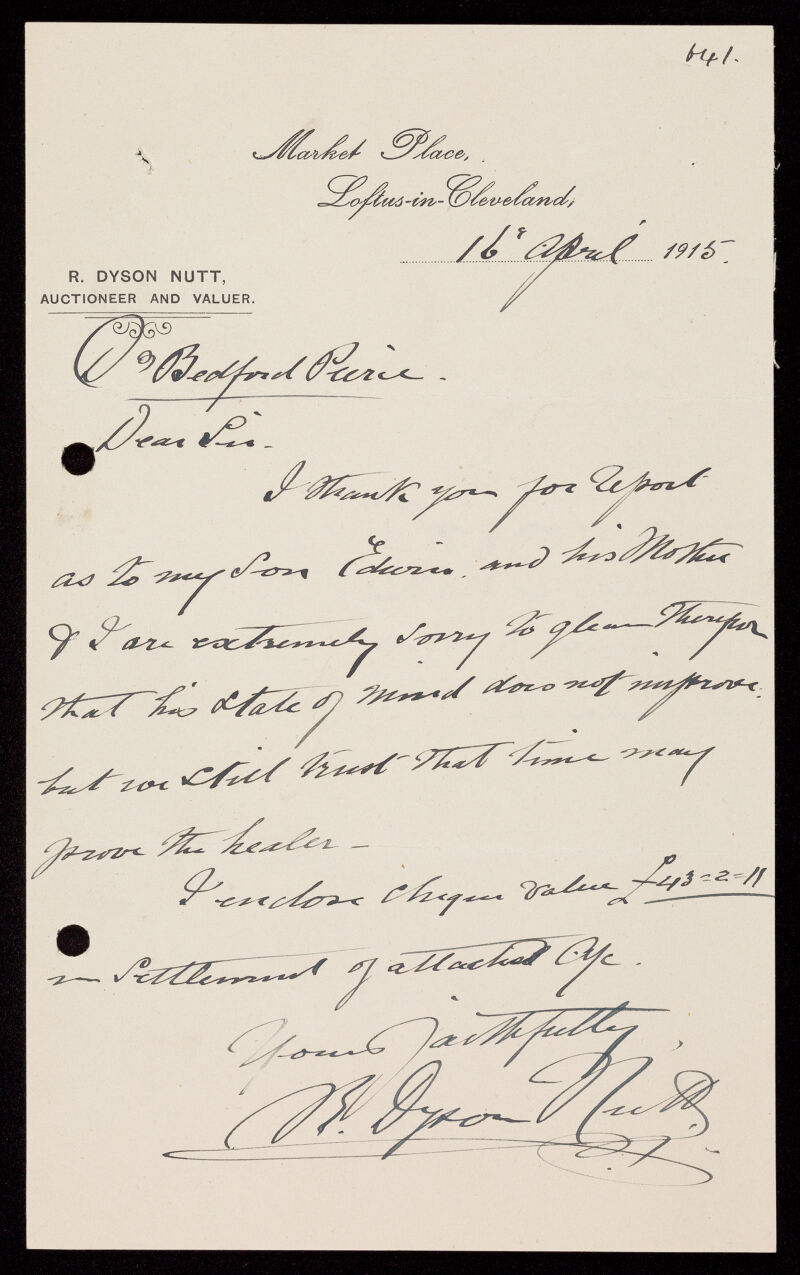 641.
Market Place,
Loftus-in-Cleveland,
16th April 1915.
R. DYSON NUTT,
AUCTIONEER AND VALUER.
Dr Bedford Pierce.
Dear Sir-
I thank you for report
as to my Son Edwin, and his Mother
& I are extremely sorry to glean
that his state of mind does not improve.
but we still trust that time may
prove the healer -
I enclose cheque value £43=2=11
in settlement of attached A/c.
Yours faithfully,
R. Dyson Nutt.